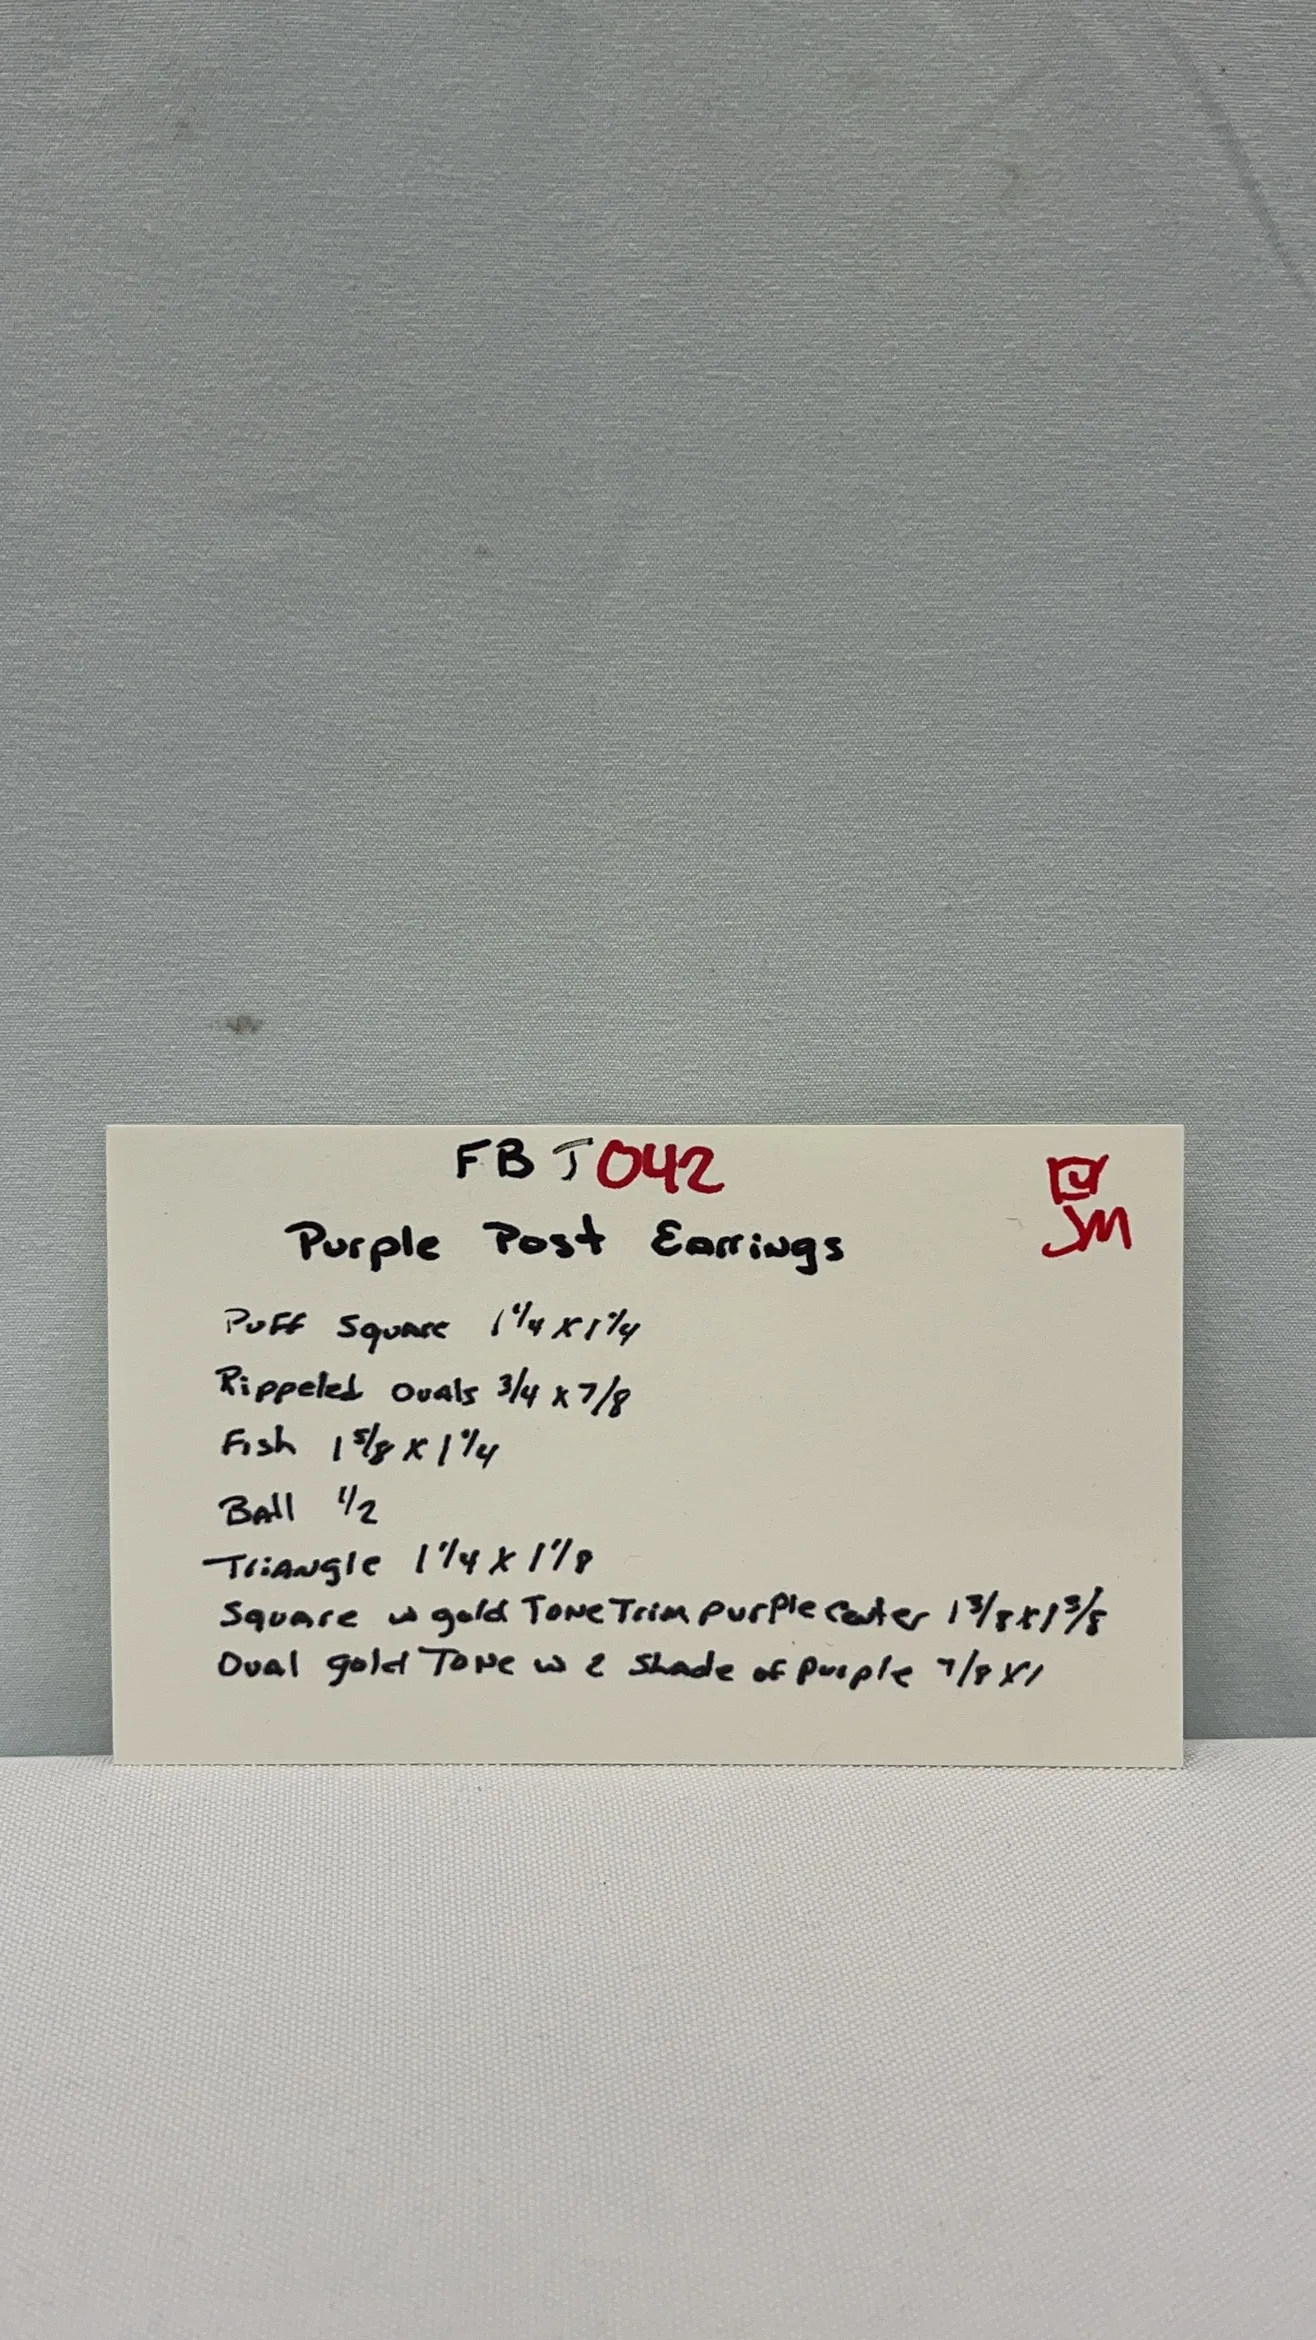 FBJ042
JM
Purple Post Earrings
Puff Square 1 1/4 x 1 1/4
Rippeled Ovals 3/4 x 7/8
Fish 1 5/8 x 1 1/4
Ball 1/2
Triangle 1 1/4 x 1 1/8
Square w gold Tone Trim purple Center 1 3/8 x 1 3/8
Oval gold Tone w 2 Shade of Purple 7/8 x 1